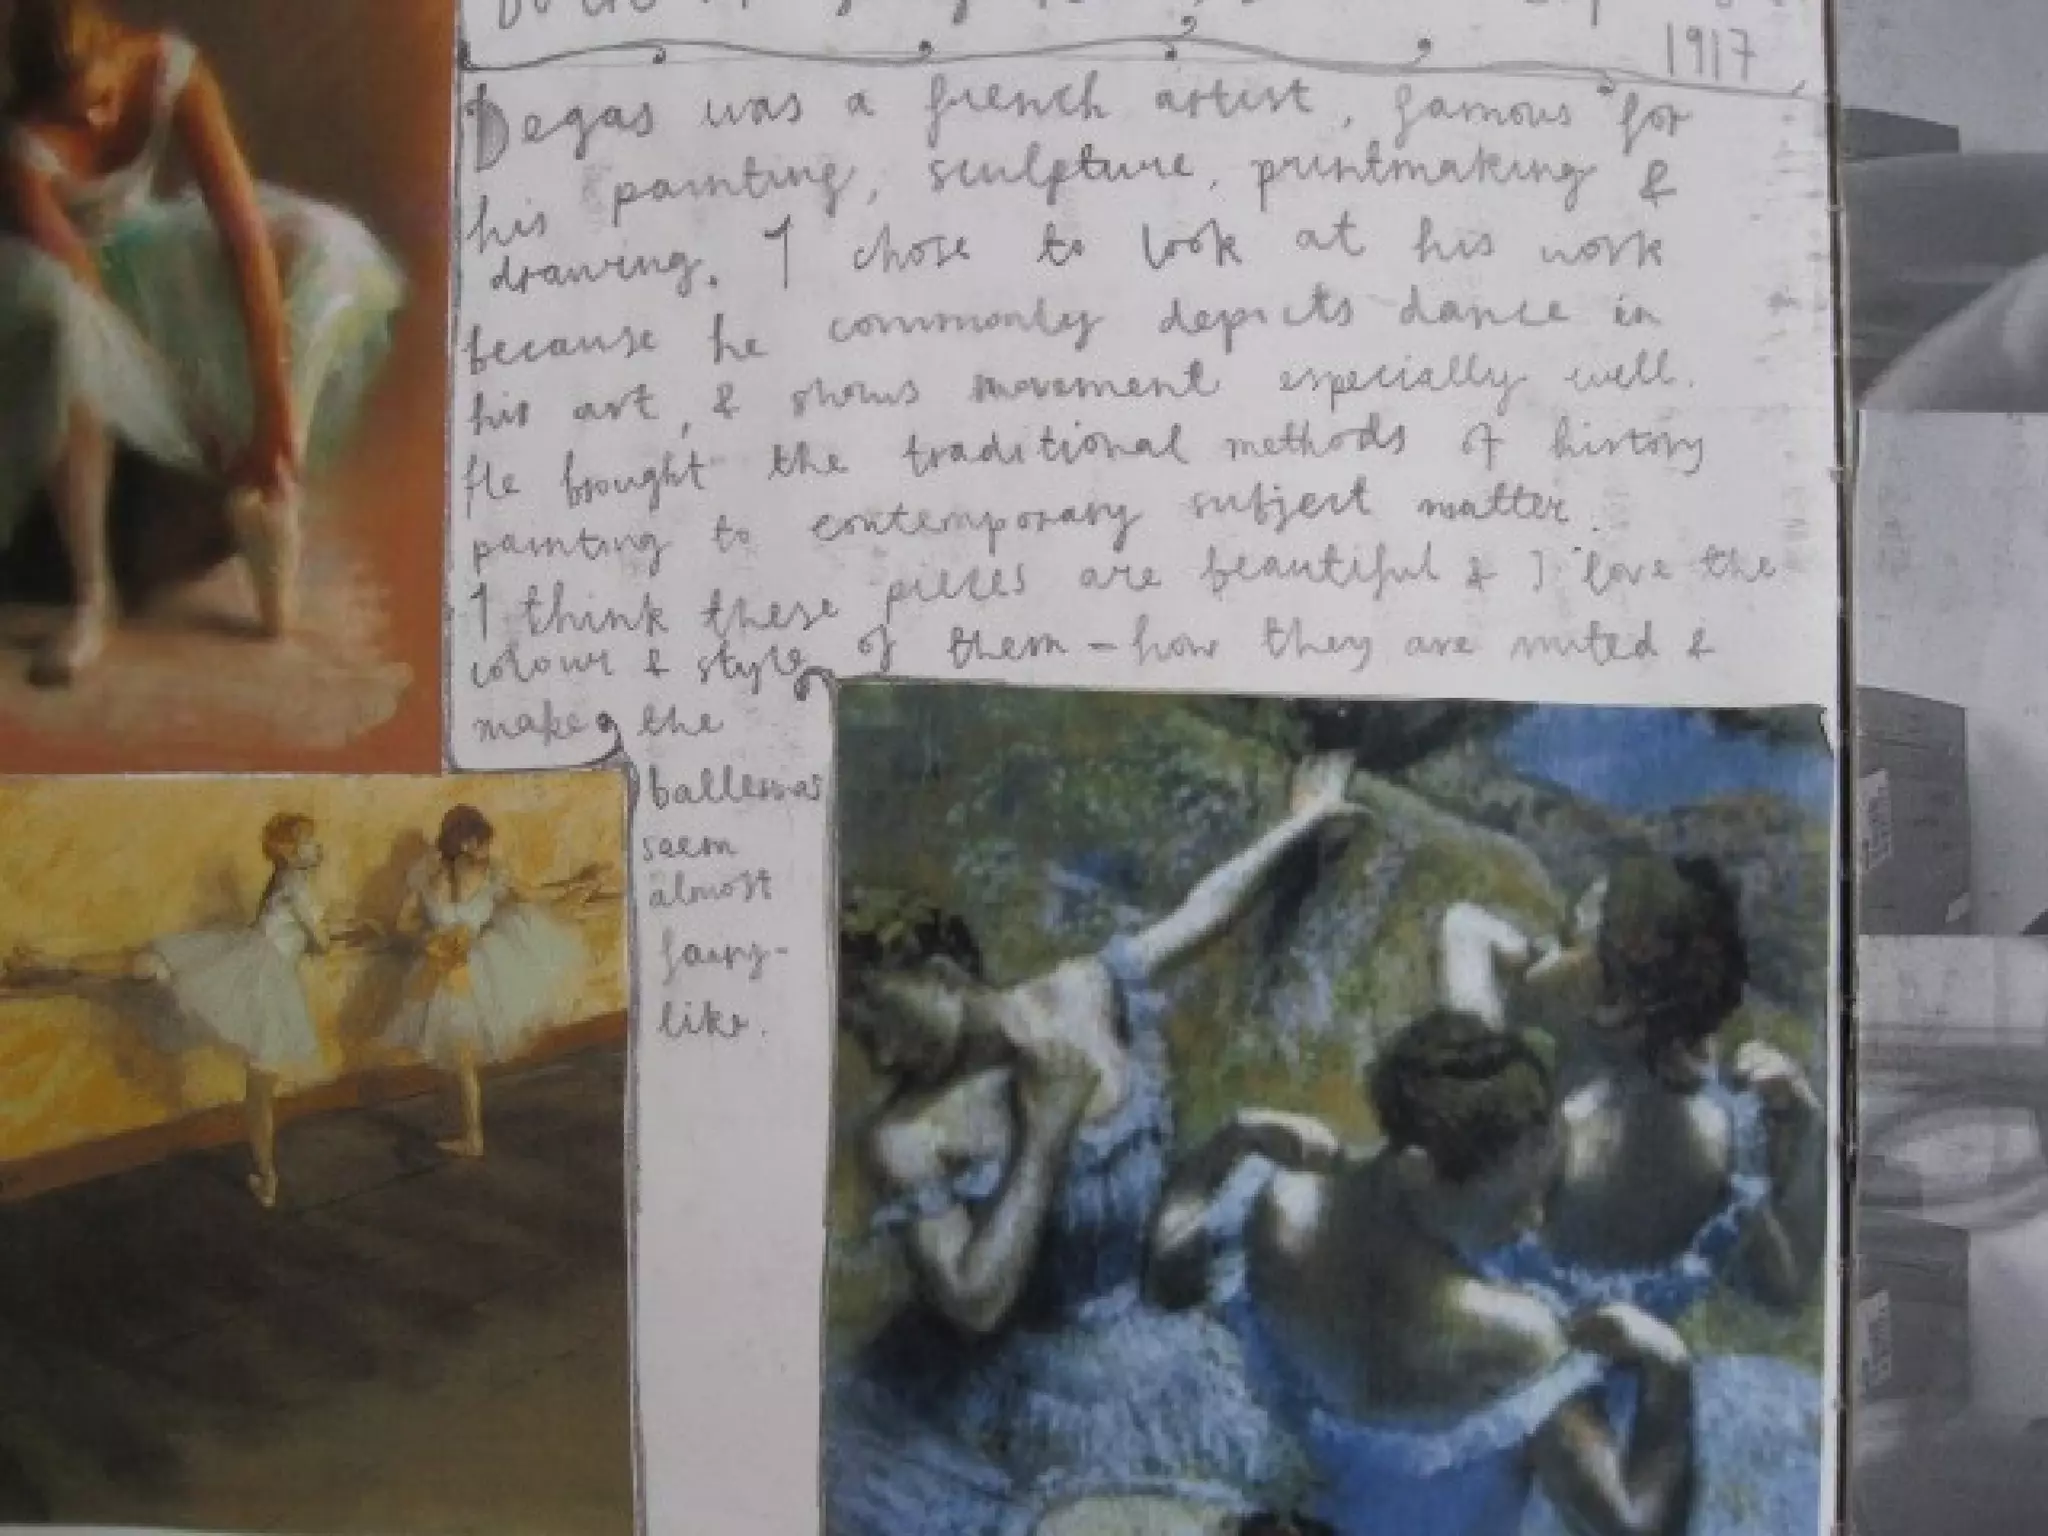 1917
Degas was a french artist, famous for
his painting, sculpture, printmaking &
drawing. I chose to look at his work
because he commonly depicts dance in
his art, & shows movement especially well.
He brought the traditional methods of history
painting to contemporary subject matter.
I think these pieces are beautiful & I love the
colour & style of them - how they are muted &
make the
ballerinas
seem
almost
fairy-
like.